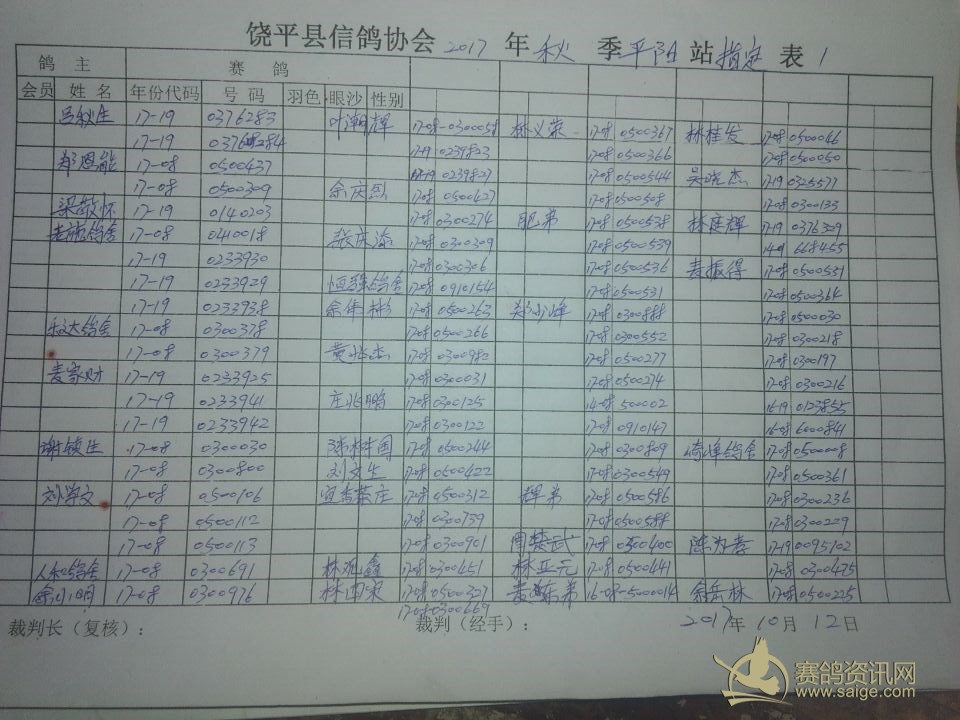 饶平县信鸽协会 2017 年 秋 季 平阳 站 指定 表 1
鸽 主 赛 鸽
会员 姓 名 年份代码 号 码 羽色 眼沙 性别
吕秋生 17-19 0376283 叶潮辉 17-08-0300058 林义荣 17-08 0500367 林桂发 17-08 0500046
17-19 0376284 17-19 0239823 17-08 0500366 17-08 0500050
郑恩能 17-08 0500437 17-19 0239827 17-08 0500544 吴晓杰 17-19 0325577
17-08 0500309 余庆烈 17-08 0500427 17-08 0500508 17-08 0300133
梁敬怀 17-19 0140203 17-08 0300274 17-08 0500538 林庭辉 17-19 0376309
17-08 0410018 17-08 0300309 17-08 0500539 668455
17-19 0233930 17-08 0300306 17-08 0500536 麦振得 17-08 0500531
17-19 0233929 17-08 0910154 17-08 0500531 17-08 0500364
17-19 0233938 余伟彬 17-08 0500263 郑少峰 17-08 0300888 17-08 0500030
17-08 0300378 17-08 0500266 17-08 0300552 17-08 0300218
17-08 0300379 黄兆杰 17-08 0300982 17-08 0500277 17-08 0300197
麦家财 17-19 0233925 17-08 0300031 17-08 0500274 17-08 0300216
17-19 0233941 庄兆鹏 17-08 0300125 14-08 500002 16-19 0123855
17-19 0233942 17-08 0300122 17-08 0910147 16-08 6000841
谢镇生 17-08 0300030 17-08 0500244 17-08 0300809 17-08 0500008
17-08 0300800 刘文生 17-08 0500422 17-08 0300549 17-08 0500361
刘学文 17-08 0500106 17-08 0500312 辉弟 17-08 0500586 17-08 0300236
17-08 0500112 17-08 0300759 17-08 0500588 17-08 0300229
17-08 0500113 17-08 0300901 周楚武 17-08 0300400 17-19 0095102
17-08 0300691 17-08 0300451 林亚元 17-08 0500441 17-08 0300475
17-08 0300976 林南荣 17-08 0500327 16-08-5000014 余岳林 17-08 0500225
17-08-0300669
裁判长（复核）： 裁判（经手）： 2017年 10月 12日
赛鸽资讯网
www.saige.com